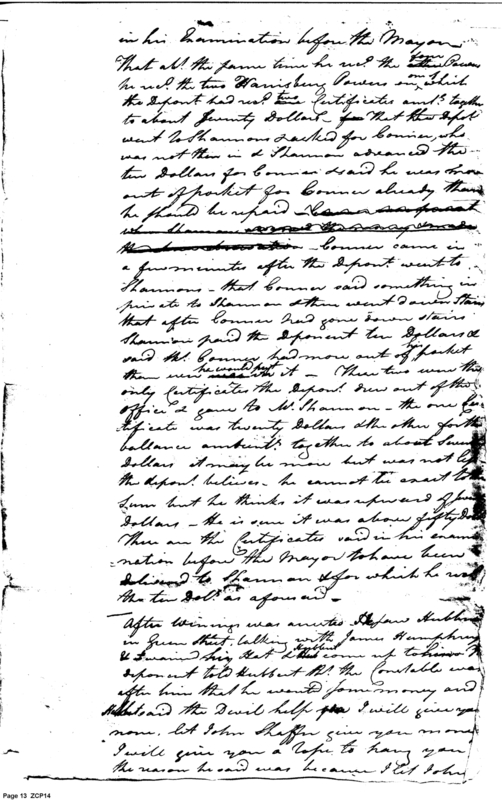 in his Examination before the Mayor
That abt. the same time he recd. the Powers
he recd. the two Harrisburg Powers on which
the Depont. had recd. two Certificates amtg. together
to about Seventy Dollars - That the Depont.
went to Shannons & asked for Conner, who
was not then in & Shannon advanced the
ten Dollars for Conner & said he was
out of pocket for Conner already than
he should be repaid
Conner came in
a few minutes after the Depont. went to
Shannons - that Conner said something in
private to Shannon & then went down Stairs
that after Conner had gone down stairs
Shannon paid the Deponent ten Dollars &
said Mr. Conner had more out of his pocket
he would put it - These two were the
only Certificates the Depont. drew out of the
office & gave to Mr. Shannon - the one Cer
tificate was twenty Dollars & the other for the
ballance amountg. together to about
dollars it may be more but was not less
the depont. believes - he cannot be exact to the
Sum but he thinks it was upward of
Dollars - He is sure it was above fifty Dollars
These are the Certificates said in his exami
nation before the Mayor to have been
delivered to Shannon & for which he recd
the ten Dolls. as aforesaid -
After Winnings was arrested I saw Hubbert
in Green Street, talking with James Humphreys
& Hubbert come up to
deponent told Hubbert tht. the Constable was
after him that he wanted some money and
Hubbert said the Devil help I will give you
none, let John Shaffer give you money
I will give you a rope to hang you
the reason he said was because I let John
Page 13 ZCP14